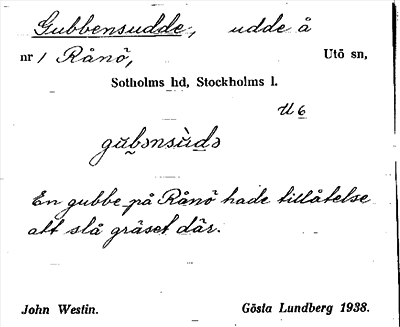 Gubbensudde, udde å
nr 1 Rånö, Utö sn,
Sotholms hd, Stockholms l.
U 6
En gubbe på Rånö hade tillåtelse
att slå gräset där.
John Westin. Gösta Lundberg 1938.